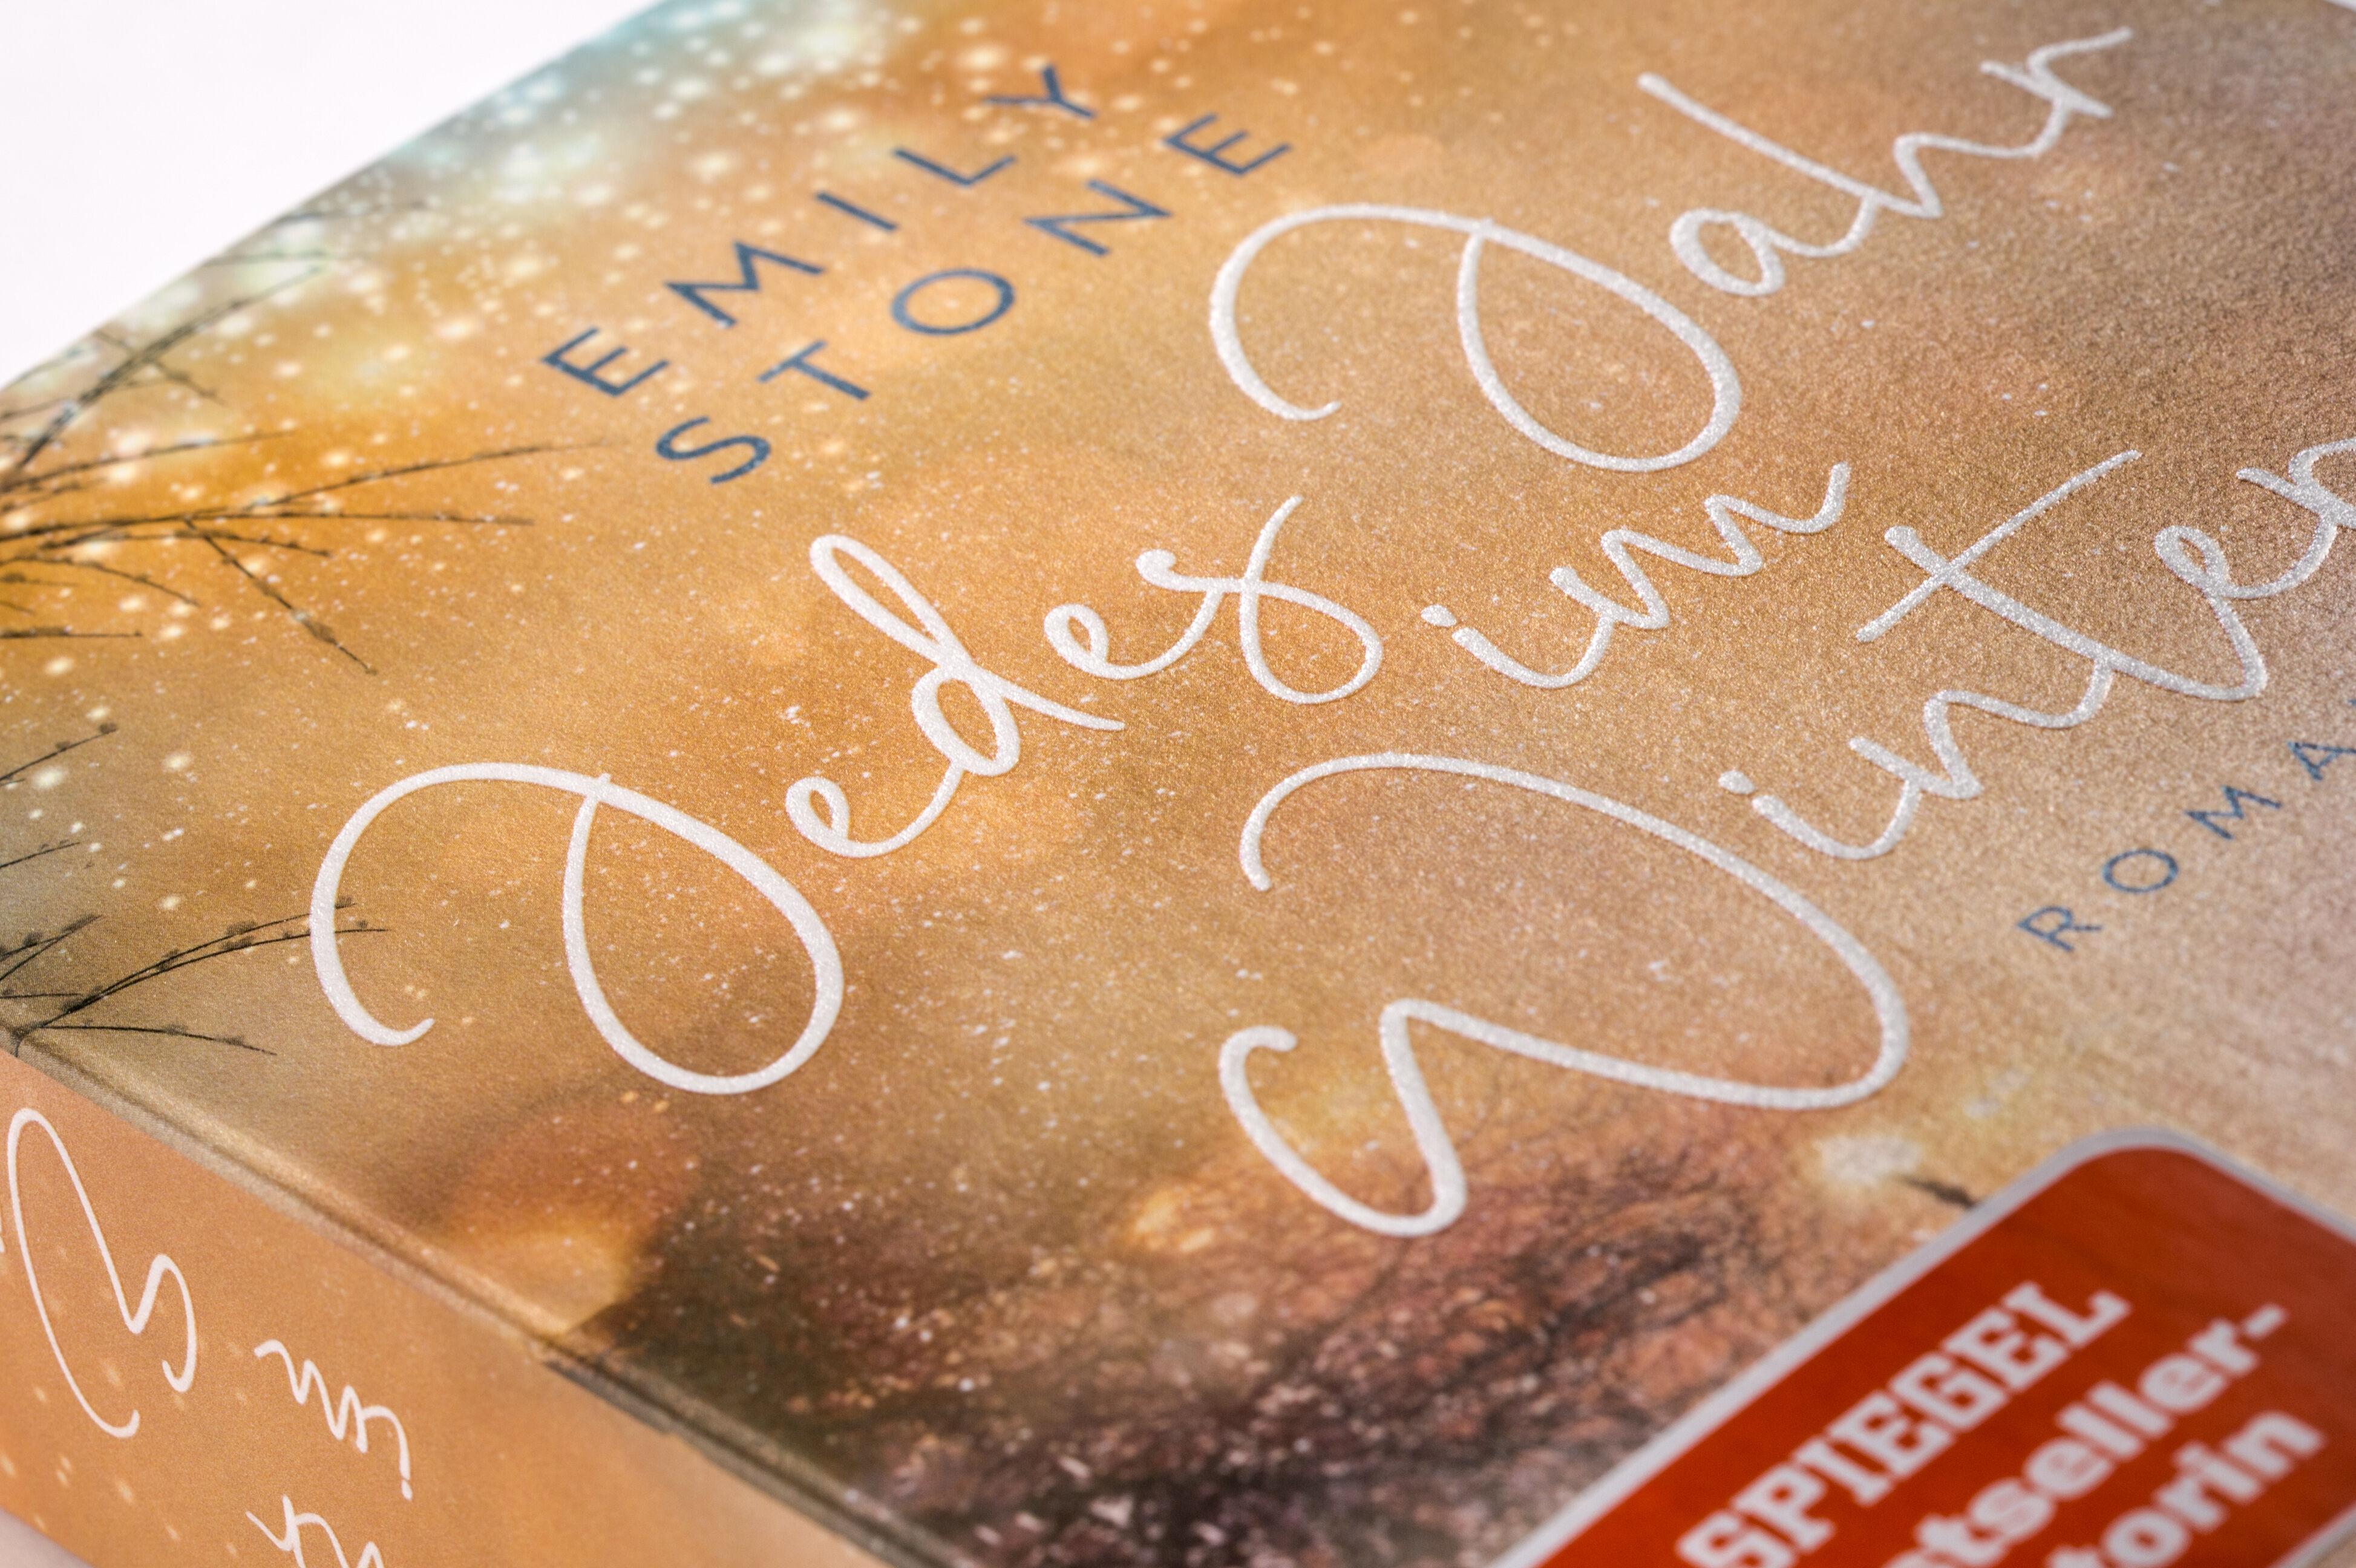 EMILY
STONE
Jedes Jahr
im
Winter
ROMA
SPIEGEL
stseller-
torin
im